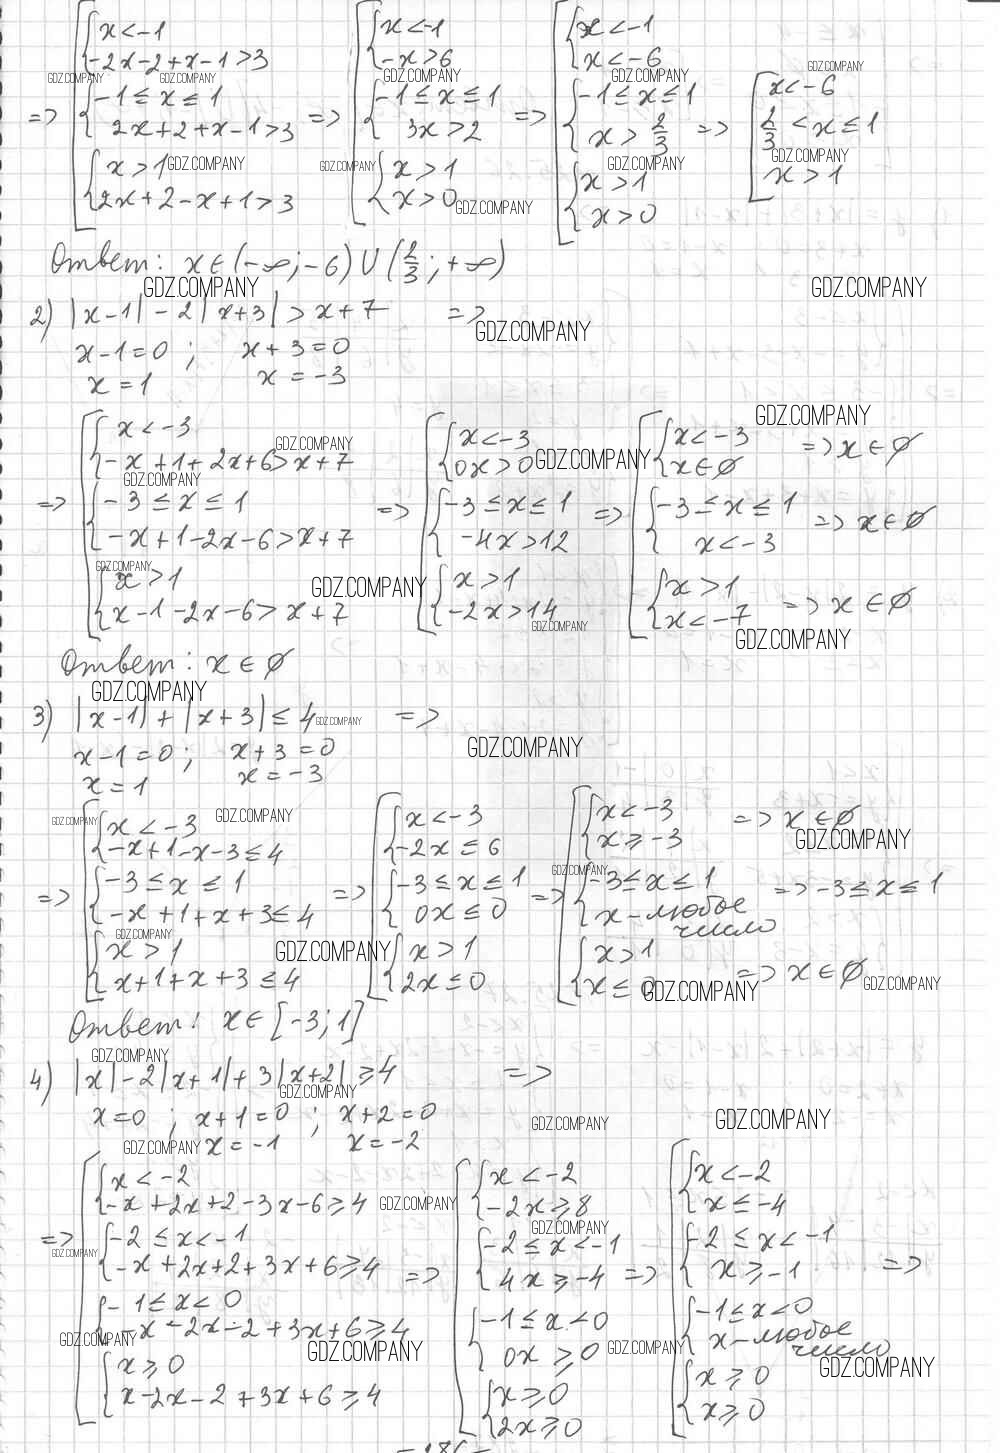 x < -1
-2x - 2 + x - 1 > 3
-1 ≤ x ≤ 1
2x + 2 + x - 1 > 3
x > 1
2x + 2 - x + 1 > 3
=>
x < -1
-x > 6
-1 ≤ x ≤ 1
3x > 2
x > 1
x > 0
=>
x < -1
x < -6
-1 ≤ x ≤ 1
x > 2/3
x > 1
x > 0
=>
x < -6
2/3 < x ≤ 1
x > 1
Ответ: x ∈ (-∞; -6) ∪ (2/3; +∞)
GDZ.COMPANY
2) |x-1| - 2|x+3| > x+7 =>
x-1=0; x+3=0
x=1 x=-3
=>
x < -3
-x + 1 + 2x + 6 > x + 7
-3 ≤ x ≤ 1
-x + 1 - 2x - 6 > x + 7
x > 1
x - 1 - 2x - 6 > x + 7
=>
x < -3
0x > 0
-3 ≤ x ≤ 1
-4x > 12
x > 1
-2x > 14
=>
x < -3
x ∈ ∅ => x ∈ ∅
-3 ≤ x ≤ 1
x < -3 => x ∈ ∅
x > 1
x < -7 => x ∈ ∅
Ответ: x ∈ ∅
GDZ.COMPANY
3) |x-1| + |x+3| ≤ 4 =>
x-1=0; x+3=0
x=1 x=-3
=>
x < -3
-x+1-x-3 ≤ 4
-3 ≤ x ≤ 1
-x+1+x+3 ≤ 4
x > 1
x+1+x+3 ≤ 4
=>
x < -3
-2x ≤ 6
-3 ≤ x ≤ 1
0x ≤ 0
x > 1
2x ≤ 0
=>
x < -3
x ≥ -3 => x ∈ ∅
-3 ≤ x ≤ 1
x - любое число => -3 ≤ x ≤ 1
x > 1
x ≤ 0 => x ∈ ∅
Ответ: x ∈ [-3; 1]
GDZ.COMPANY
4) |x| - 2|x+1| + 3|x+2| ≥ 4 =>
x=0; x+1=0; x+2=0
x=-1 x=-2
=>
x < -2
-x + 2x + 2 - 3x - 6 ≥ 4
-2 ≤ x < -1
-x + 2x + 2 + 3x + 6 ≥ 4
-1 ≤ x < 0
-x - 2x - 2 + 3x + 6 ≥ 4
x ≥ 0
x - 2x - 2 + 3x + 6 ≥ 4
=>
x < -2
-2x ≥ 8
-2 ≤ x < -1
4x ≥ -4
-1 ≤ x < 0
0x ≥ 0
x ≥ 0
2x ≥ 0
=>
x < -2
x ≤ -4
-2 ≤ x < -1
x ≥ -1
-1 ≤ x < 0
x - любое число
x ≥ 0
x ≥ 0
=>
GDZ.COMPANY